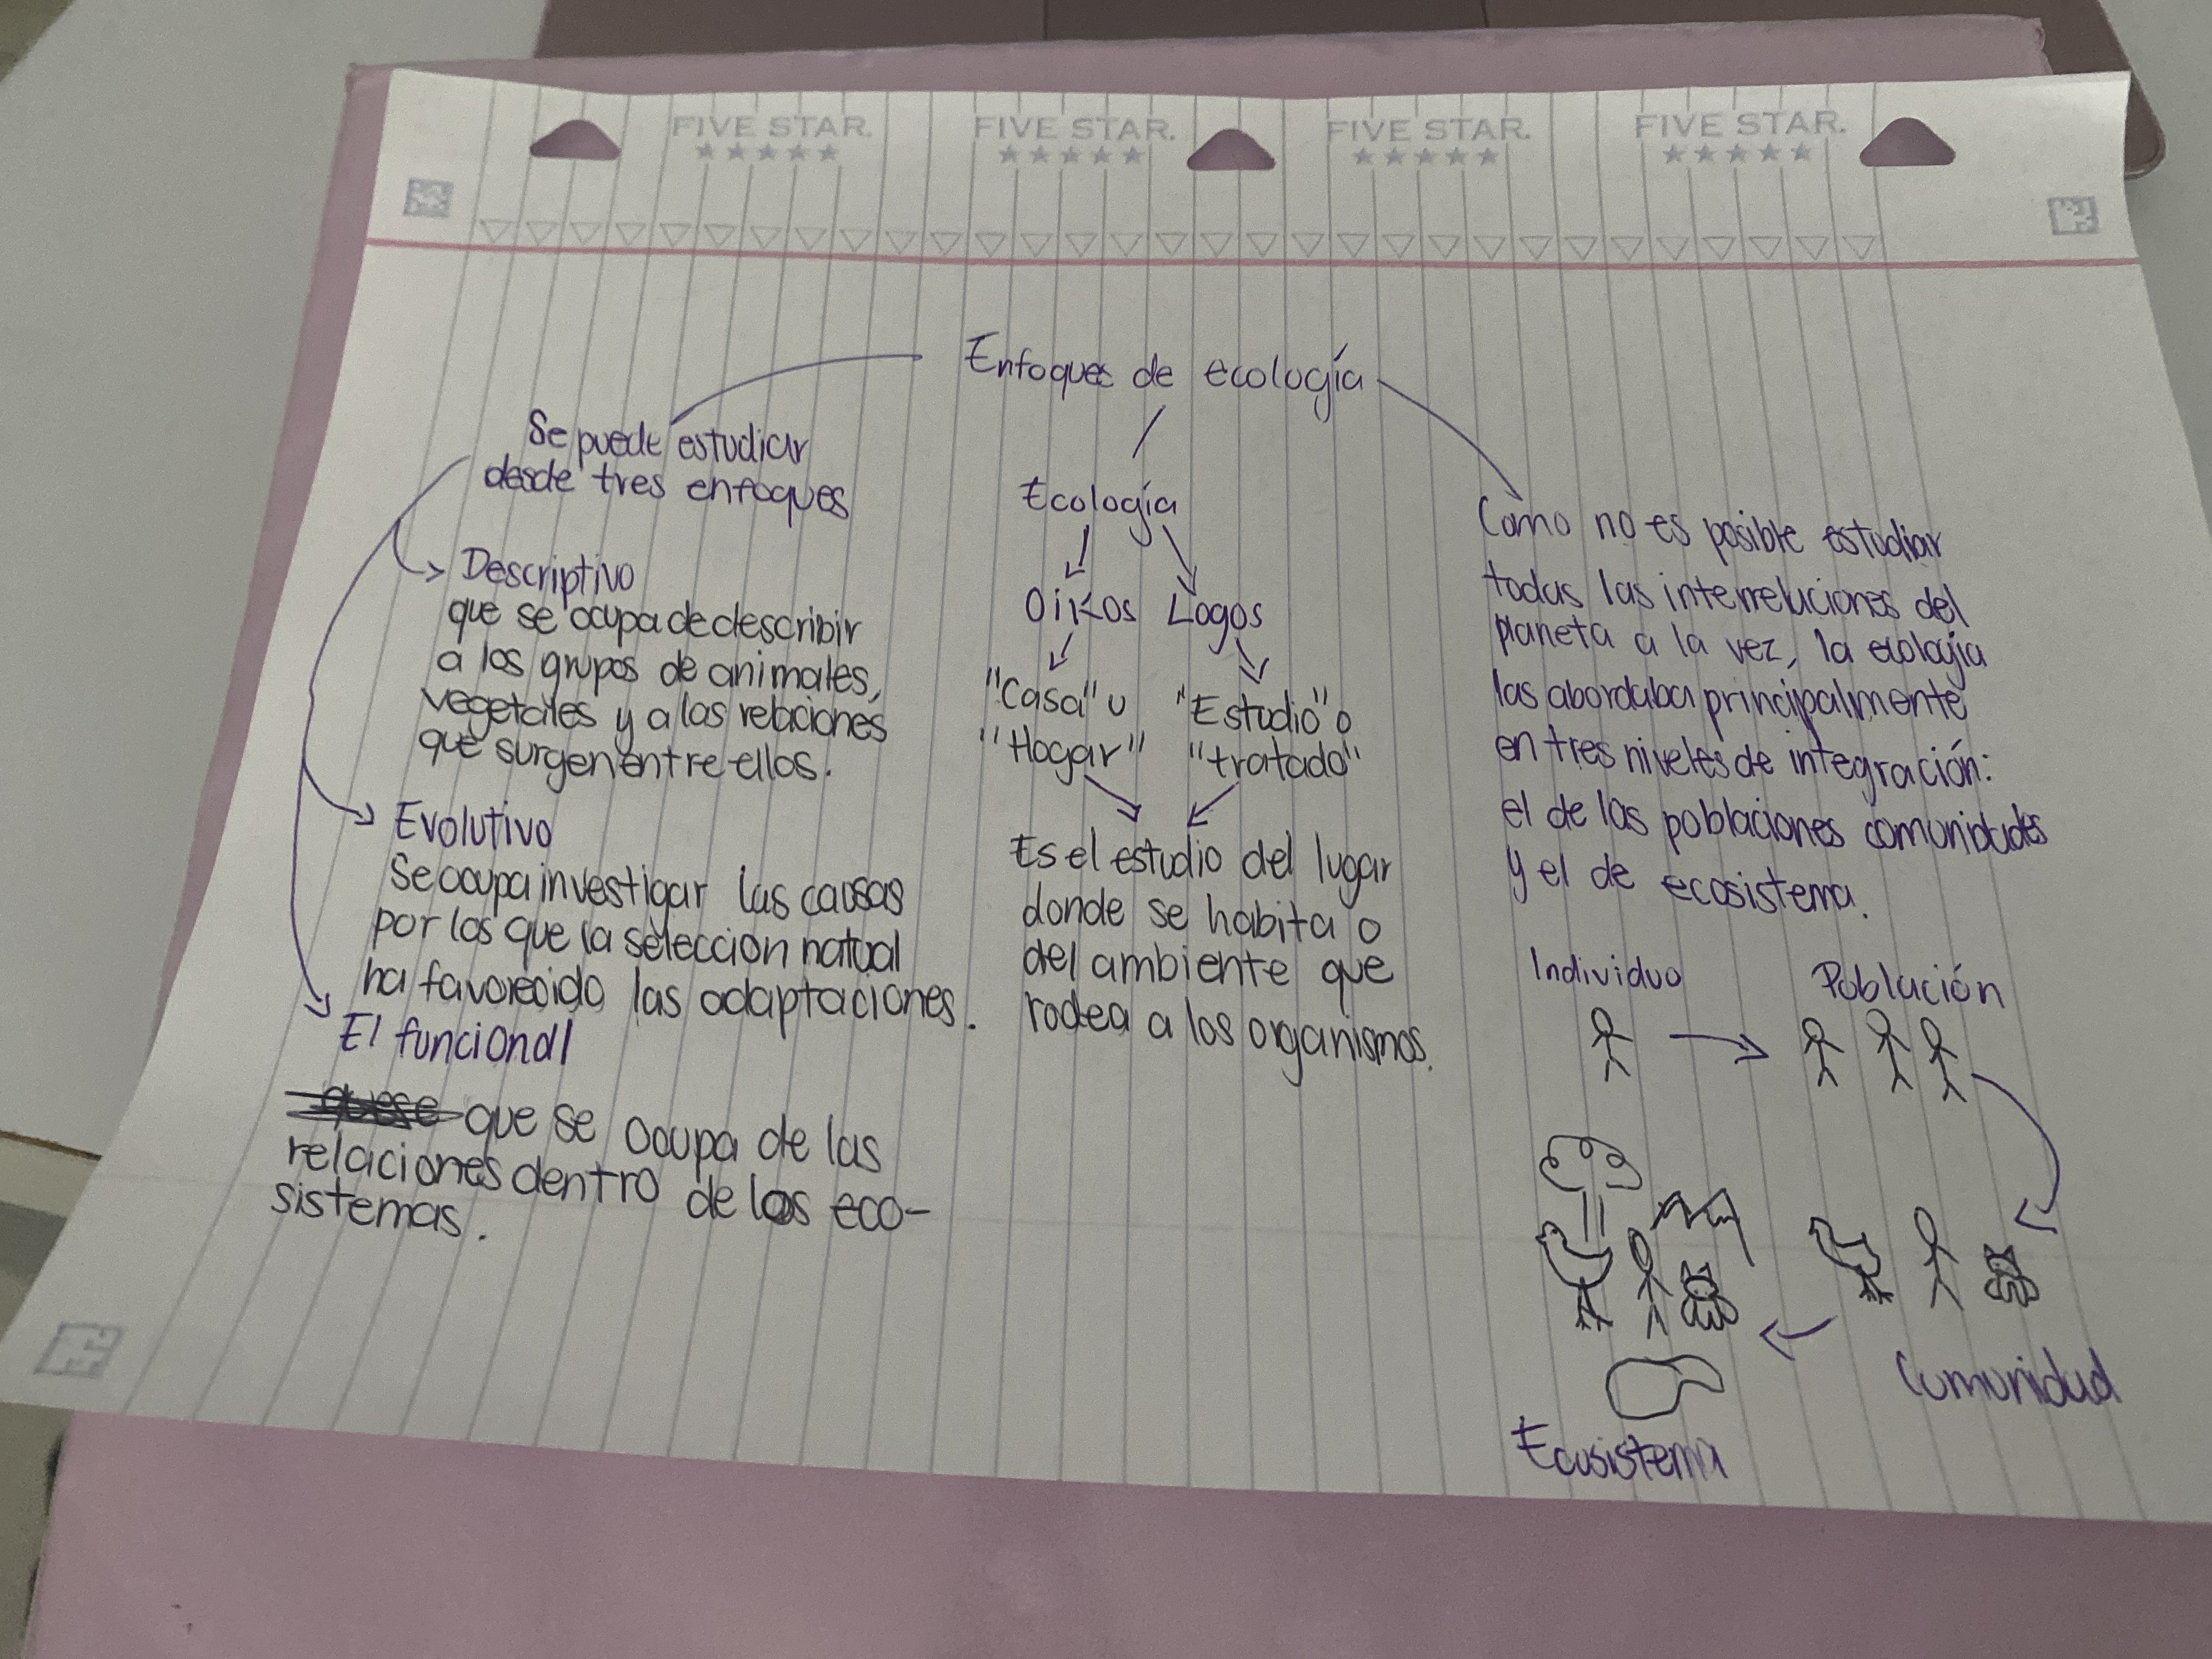 FIVE STAR. FIVE STAR. FIVE STAR. FIVE STAR.
Enfoques de ecología
Se puede estudiar
desde tres enfoques
Descriptivo
que se ocupa de describir
a los grupos de animales,
vegetales y a las relaciones
que surgen entre ellos.
Evolutivo
Se ocupa investigar las causas
por las que la selección natual
ha favorecido las adaptaciones.
El funcional
que se ocupa de las
relaciones dentro de los eco-
sistemas.
Ecología
Oikos Logos
"Casa" u "Estudio" o
"Hogar" "tratado"
Es el estudio del lugar
donde se habita o
del ambiente que
rodea a los organismos.
Como no es posible estudiar
todas las interrelaciones del
planeta a la vez, la ecología
las abordaba principalmente
en tres niveles de integración:
el de las poblaciones comunidades
y el de ecosistema.
Individuo Población
Comunidad
Ecosistema